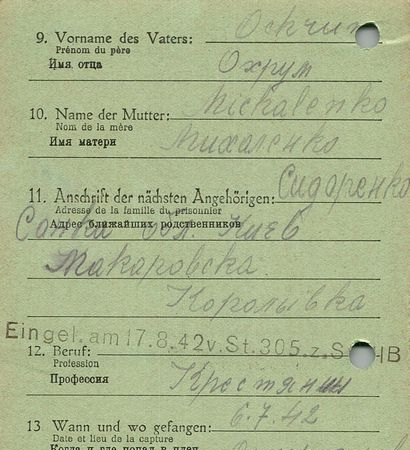 9. Vorname des Vaters:
Prénom du père
Имя отца Охрим
10. Name der Mutter: Michalenko
Nom de la mère
Имя матери Михаленко
11. Anschrift der nächsten Angehörigen: Сидоренко
Adresse de la famille du prisonnier
Адрес ближайших родственников
Сонка Обл. Киев
Макаровска
Королывка
Eingel. am 17.8.42 v. St. 305. z. IB
12. Beruf:
Profession
Профессия Крестянин
6.7.42
13 Wann und wo gefangen:
Date et lieu de la capture
Когда и где попал в плен